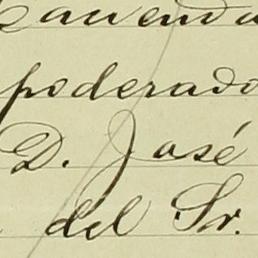 poderado
D. José
del Sr.